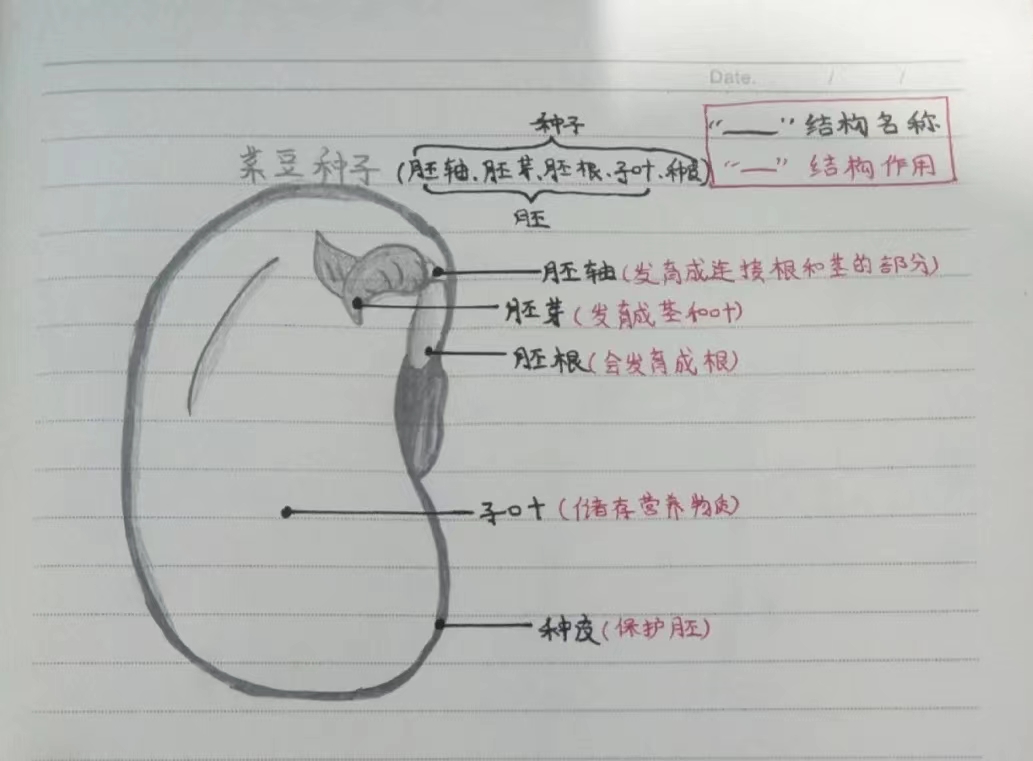 Date. / /
种子
"——"结构名称
菜豆种子(胚轴、胚芽、胚根、子叶、种皮)
"—"结构作用
胚
胚轴(发育成连接根和茎的部分)
胚芽(发育成茎和叶)
胚根(会发育成根)
子叶(储存营养物质)
种皮(保护胚)